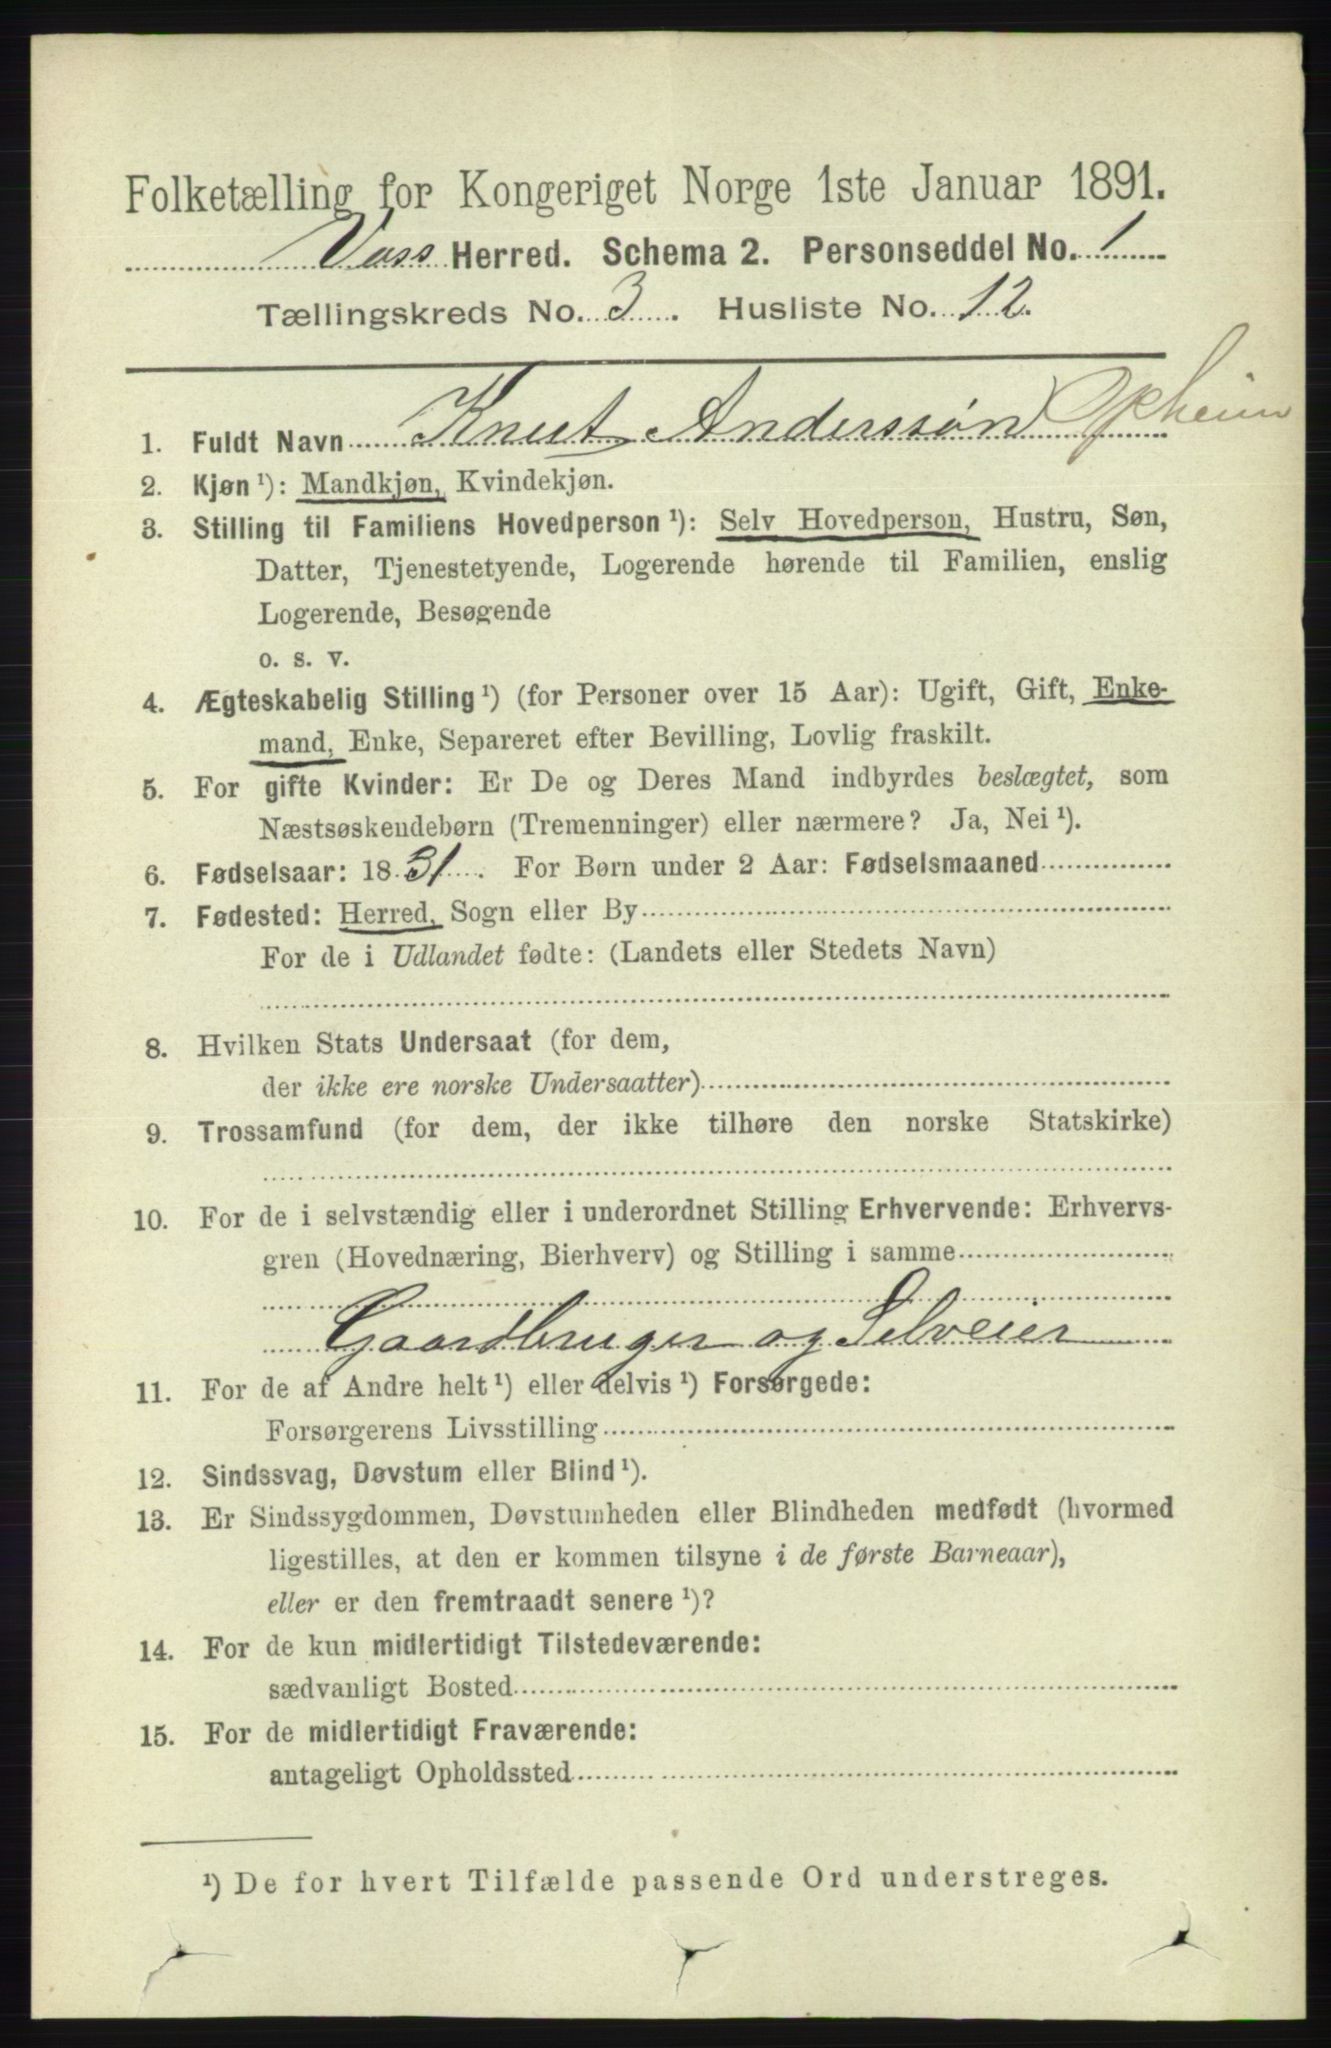 Folketælling for Kongeriget Norge 1ste Januar 1891.
Voss Herred. Schema 2. Personseddel No. 1
Tællingskreds No. 3. Husliste No. 12.
1. Fuldt Navn Knut Anderssøn Opheim
2. Kjøn ¹): Mandkjøn, Kvindekjøn.
3. Stilling til Familiens Hovedperson ¹): Selv Hovedperson, Hustru, Søn,
Datter, Tjenestetyende, Logerende hørende til Familien, enslig
Logerende, Besøgende
o. s. v.
4. Ægteskabelig Stilling ¹) (for Personer over 15 Aar): Ugift, Gift, Enke-
mand, Enke, Separeret efter Bevilling, Lovlig fraskilt.
5. For gifte Kvinder: Er De og Deres Mand indbyrdes beslægtet, som
Næstsøskendebørn (Tremenninger) eller nærmere? Ja, Nei ¹).
6. Fødselsaar: 1831. For Børn under 2 Aar: Fødselsmaaned
7. Fødested: Herred, Sogn eller By
For de i Udlandet fødte: (Landets eller Stedets Navn)
8. Hvilken Stats Undersaat (for dem,
der ikke ere norske Undersaatter)
9. Trossamfund (for dem, der ikke tilhøre den norske Statskirke)
10. For de i selvstændig eller i underordnet Stilling Erhvervende: Erhvervs-
gren (Hovednæring, Bierhverv) og Stilling i samme
Gaardbruger og Selveier
11. For de af Andre helt ¹) eller delvis ¹) Forsørgede:
Forsørgerens Livsstilling
12. Sindssvag, Døvstum eller Blind ¹).
13. Er Sindssygdommen, Døvstumheden eller Blindheden medfødt (hvormed
ligestilles, at den er kommen tilsyne i de første Barneaar),
eller er den fremtraadt senere ¹)?
14. For de kun midlertidigt Tilstedeværende:
sædvanligt Bosted
15. For de midlertidigt Fraværende:
antageligt Opholdssted
¹) De for hvert Tilfælde passende Ord understreges.